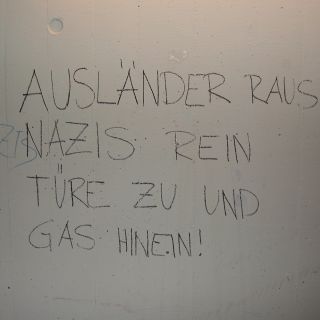 AUSLÄNDER RAUS
NAZIS REIN
TÜRE ZU UND
GAS HINEIN!